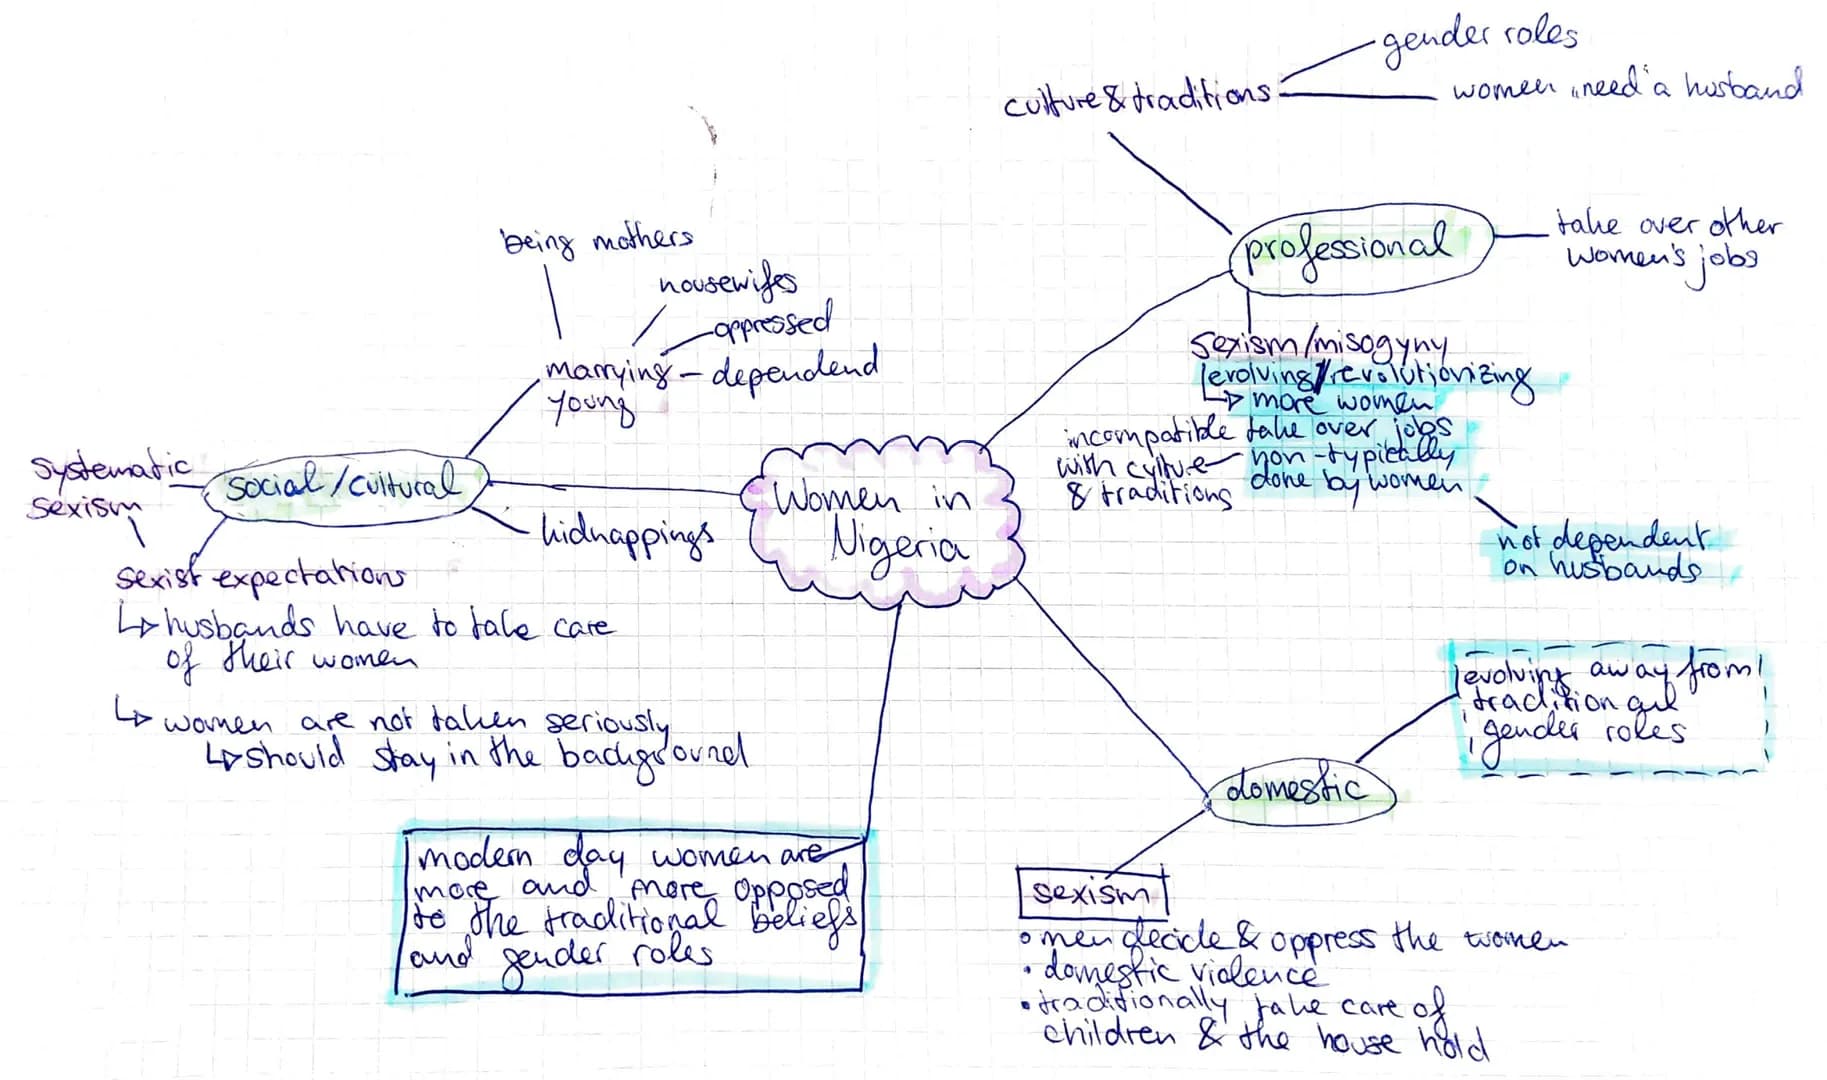 gender roles
culture & traditions
women „need" a husband
professional
take over other
women's jobs
being mothers
housewifes
oppressed
marrying – dependend
young
sexism/misogyny
evolving/revolutionizing
↳ more women
take over jobs
non-typically
done by women
incompatible
with culture
& traditions
not dependent
on husbands
systematic
sexism
social/cultural
kidnappings
Women in
Nigeria
sexist expectations
↳ husbands have to take care
of their women
↳ women are not taken seriously
↳ should stay in the background
evolving away from
tradition and
gender roles
domestic
modern day women are
more and more opposed
to the traditional beliefs
and gender roles
sexism
• men decide & oppress the women
• domestic violence
• traditionally take care of
children & the house hold